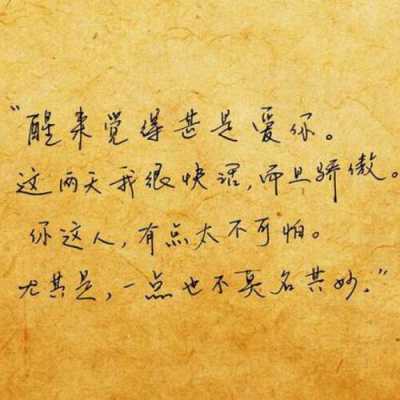 “醒来觉得甚是爱你。
这两天我很快活,而且骄傲。
你这人,有点太不可怕。
尤其是,一点也不莫名其妙。”